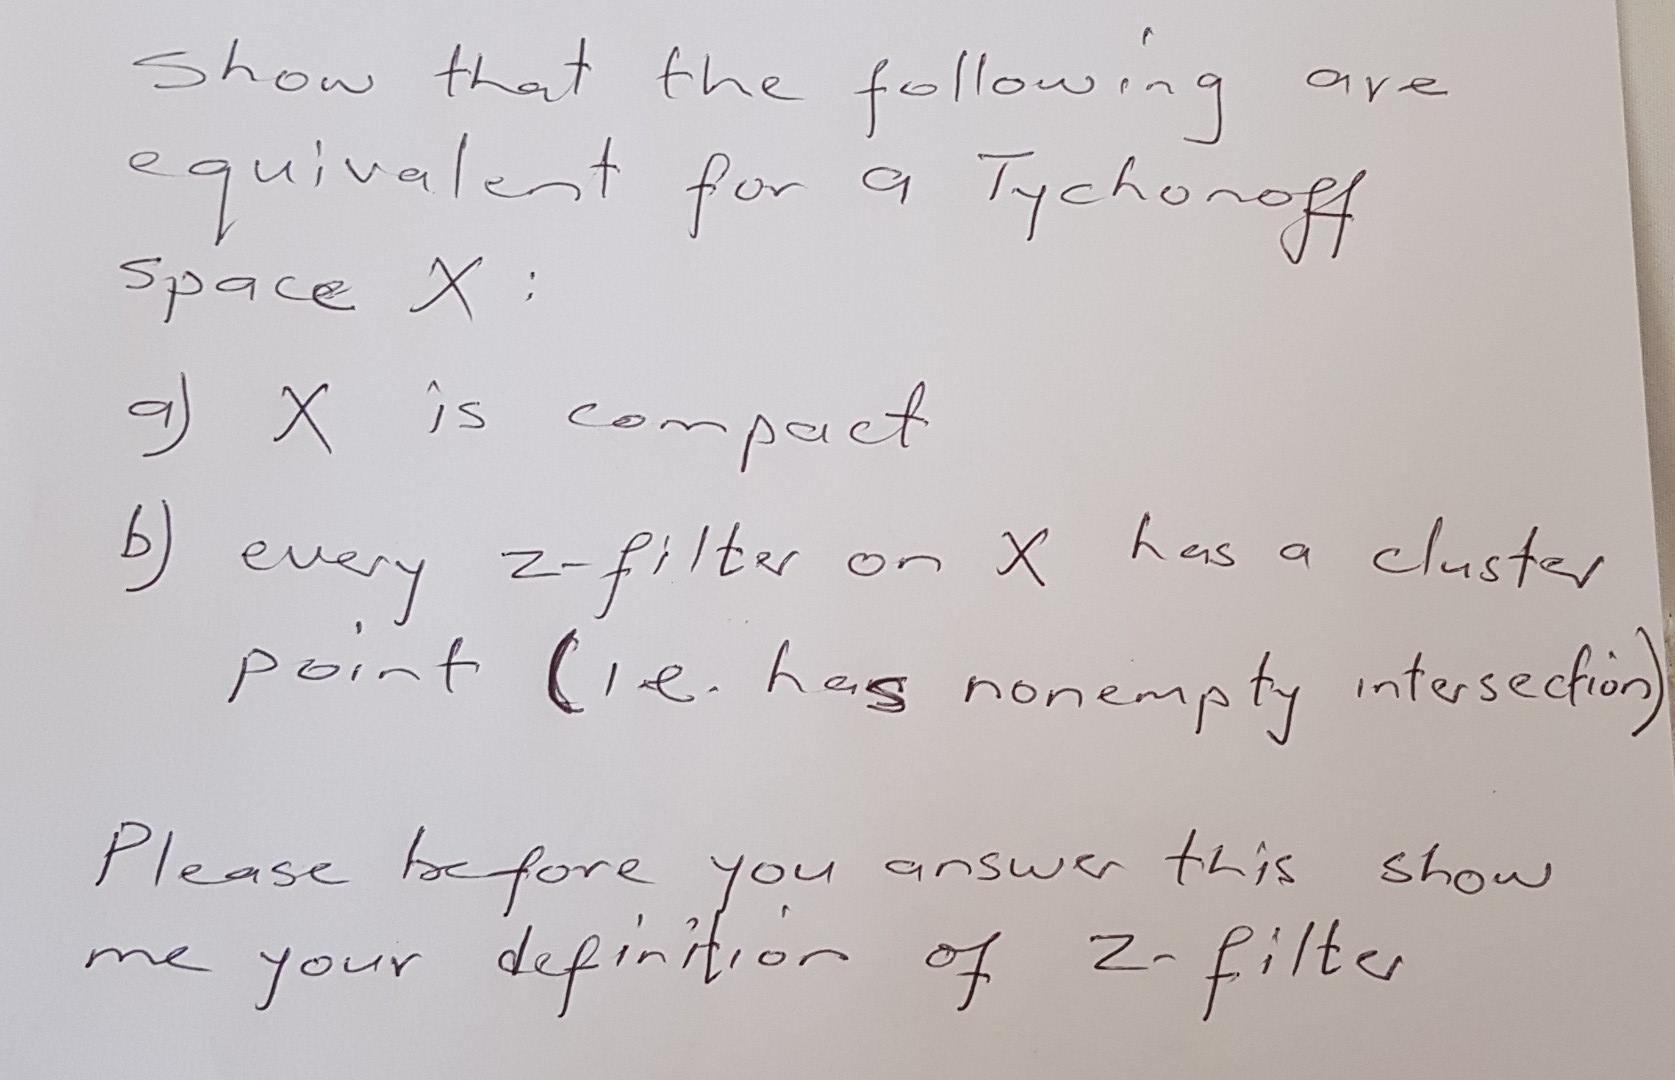 Show that the following are
equivalent for a Tychonoff
space X :
a) X is compact
b) every z-filter on X has a cluster
point (i.e. has nonempty intersection)
Please before you answer this show
me your definition of z-filter